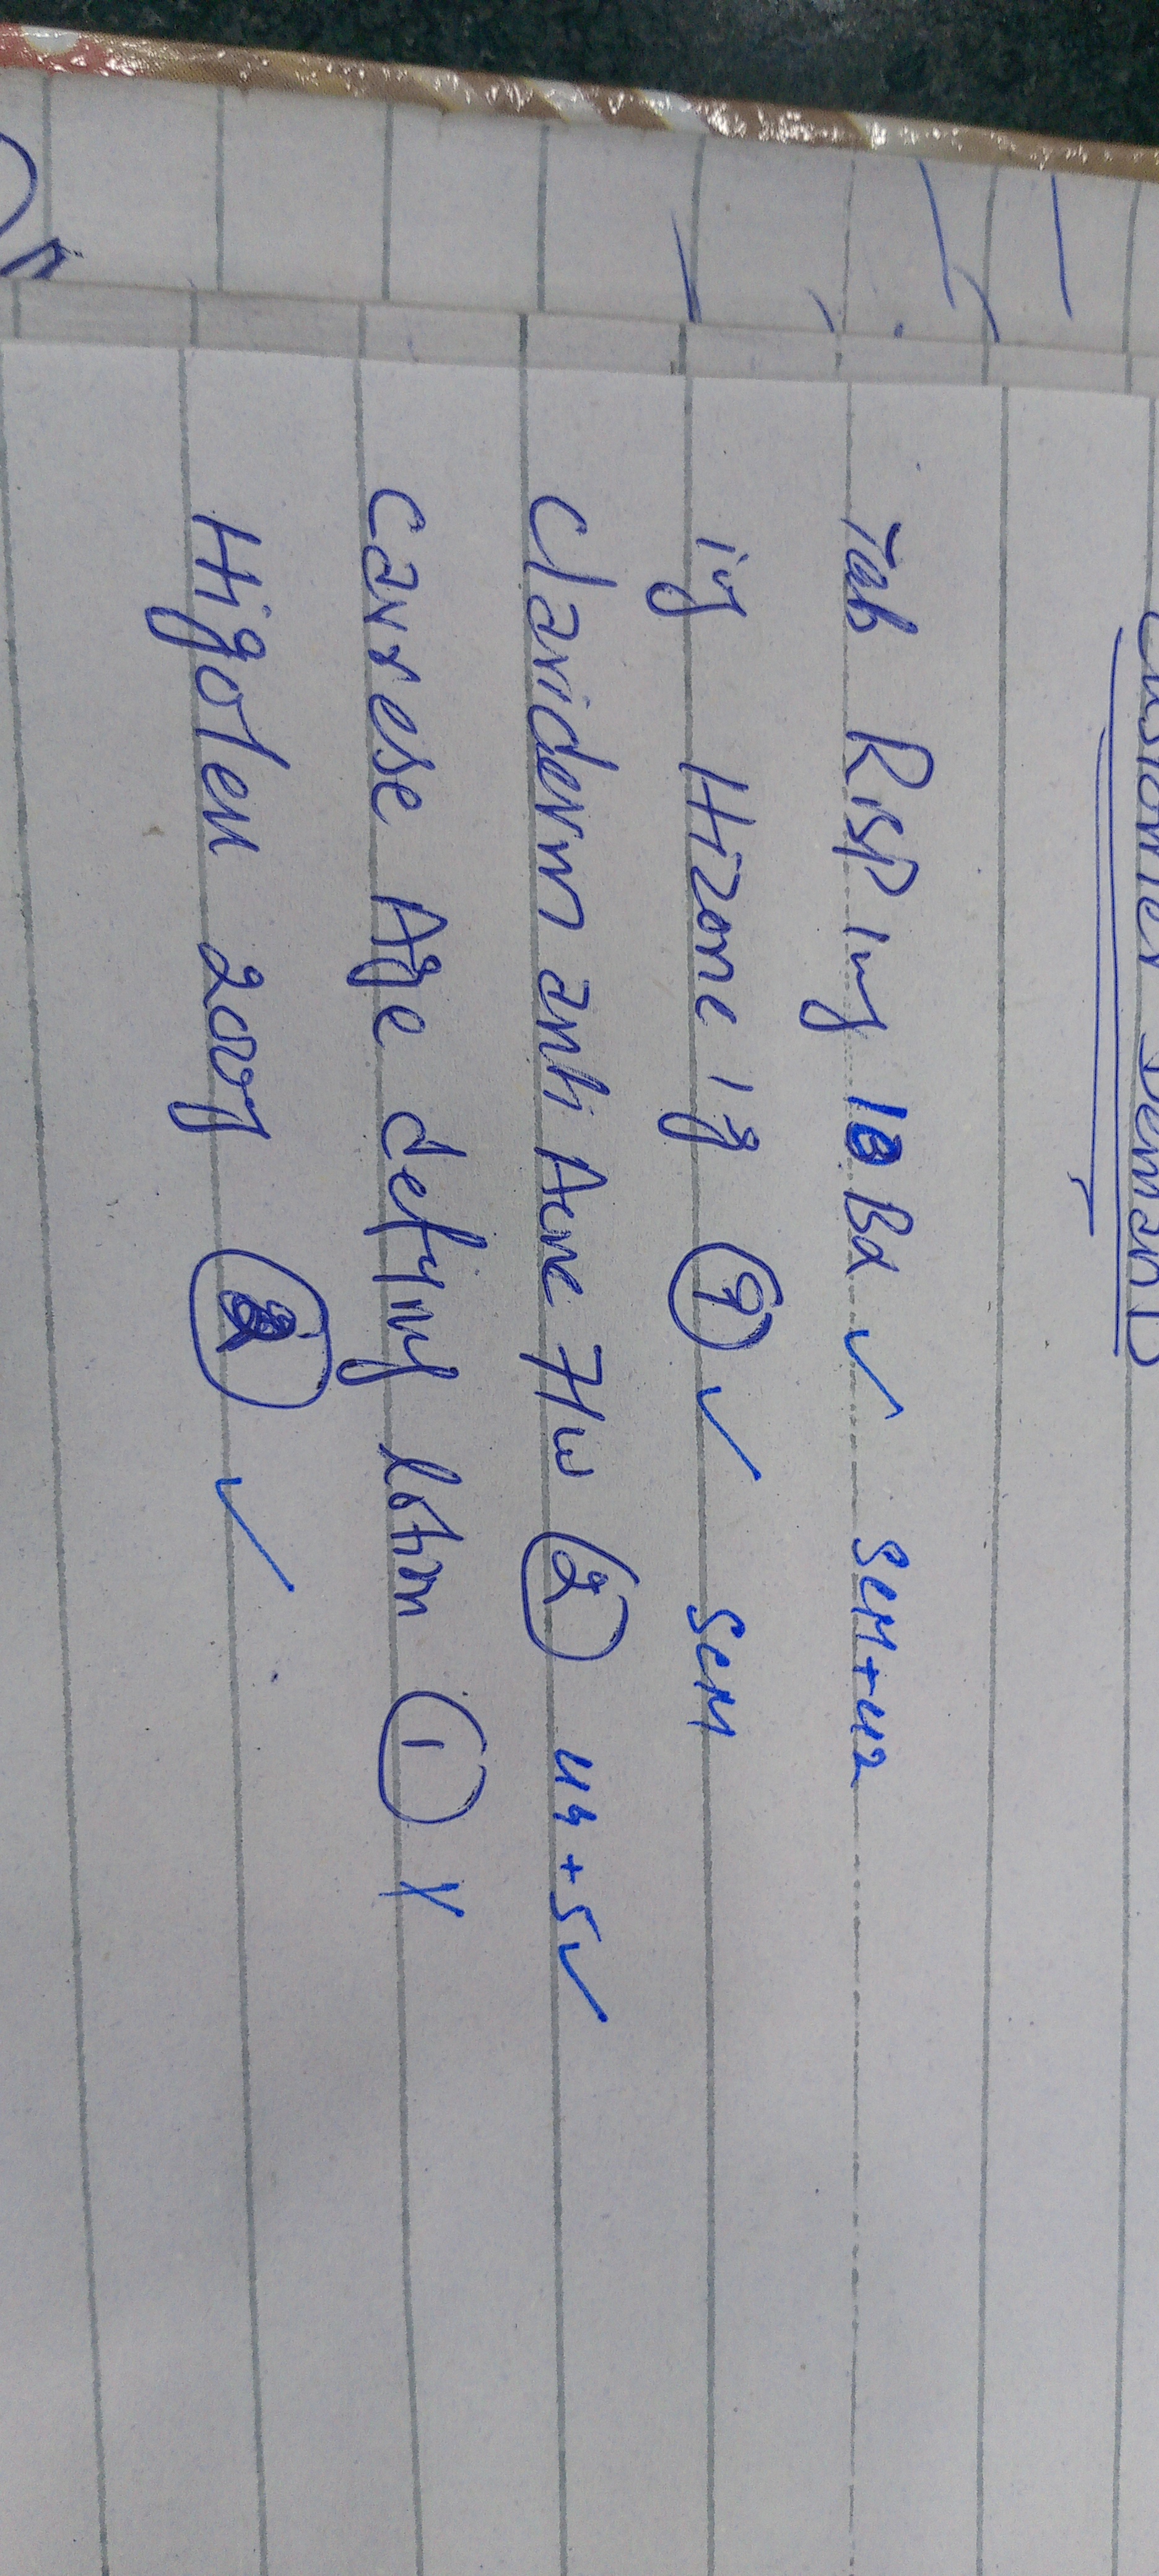 Customer Demand
Tab Risp 1mg 10 Bx ✓ SCM+U2
inj Hizone 1g 9 ✓ SCM
Clariderm anti Acne F/w 2 U4+5 ✓
Carrese Age defying lotion 1 X
Higoten 200g 2 ✓